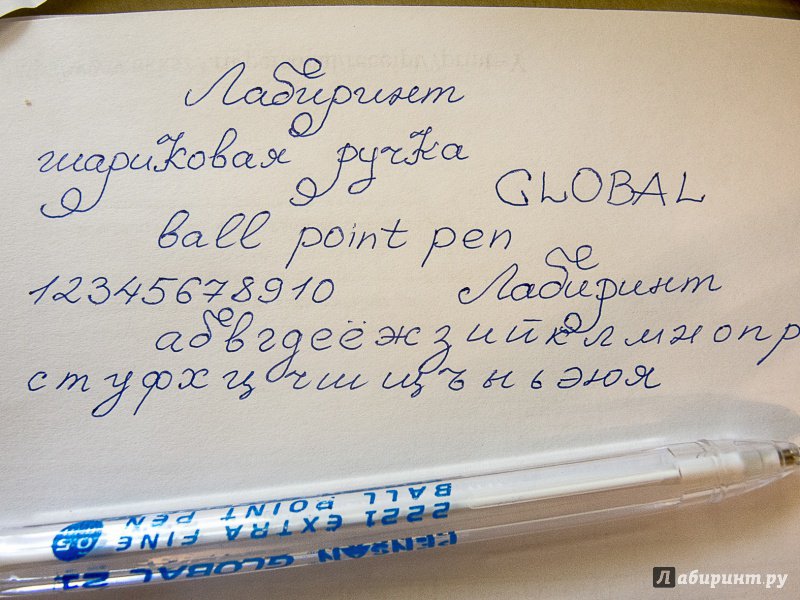 Лабиринт
шариковая ручка
GLOBAL
ball point pen
12345678910 Лабиринт
абвгдеёжзийклмнопр
стуфхцчшщъыьэюя
PENSAN GLOBAL 21
2221 EXTRA FINE
BALL POINT PEN
05
Лабиринт.ру